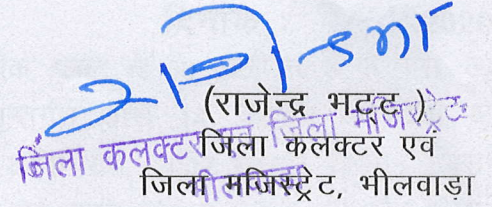 (राजेन्द्र भट्ट)
जिला कलक्टर एवं जिला मजिस्ट्रेट
जिला कलक्टर एवं
भीलवाड़ा
जिला मजिस्ट्रेट, भीलवाड़ा